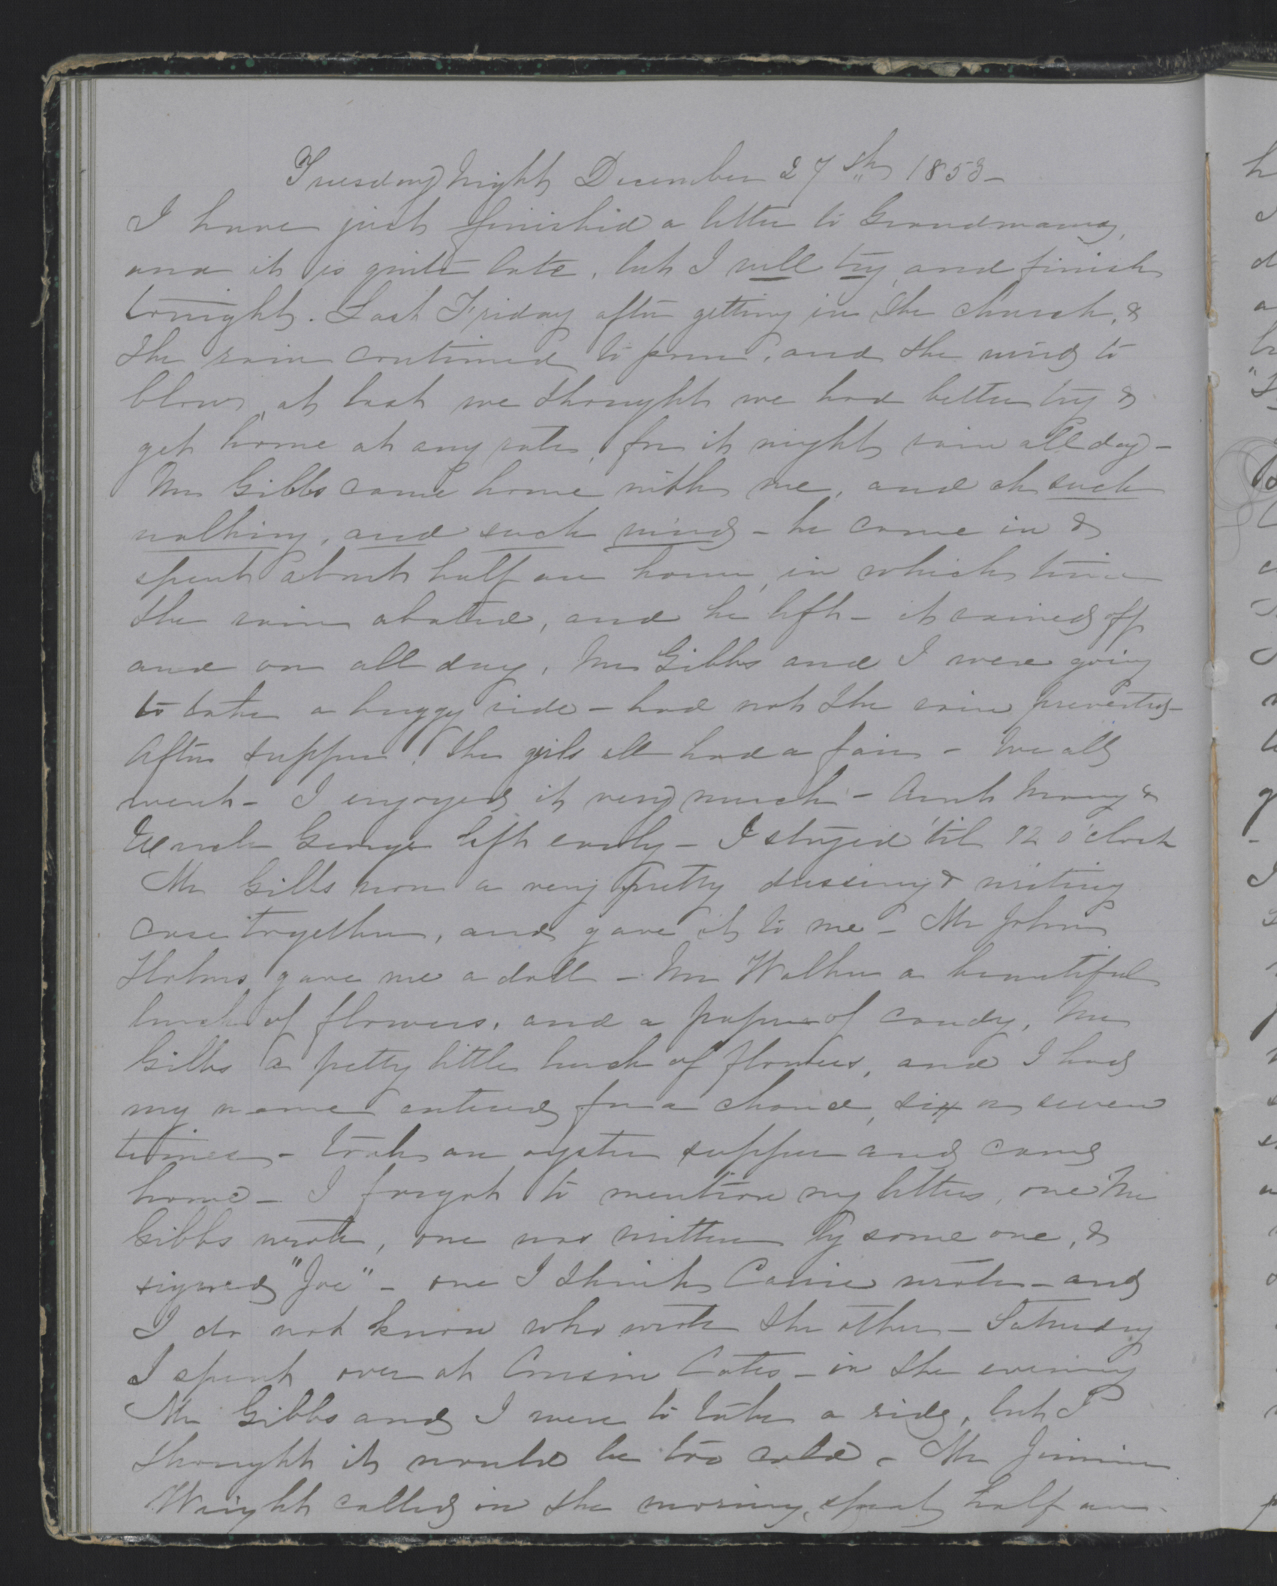 Tuesday Night December 27th 1853-
I have just finished a letter to Grandmama,
and it is quite late, but I will try and finish
tonight. Last Friday after getting in the church, &
the rain continued to pour, and the wind to
blow, at last we thought we had better try &
get home at any rate, for it might rain all day-
Mr Gibbs came home with me, and oh such
walking, and such wind - he came in &
spent about half an hour, in which time
the rain abated, and he left - it rained off
and on all day, Mr Gibbs and I were going
to take a buggy ride - had not the rain prevented-
After supper the girls all had a fair - We all
went - I enjoyed it very much - Aunt Mary &
Uncle George left early - I stayed 'til 12 o'clock
Mr Gibbs won a very pretty dressing & writing
case together, and gave it to me - Mr John
Holms gave me a doll - Mr Walker a beautiful
bunch of flowers, and a paper of candy, Mr
Gibbs a pretty little bunch of flowers, and I had
my name entered for a chance, six or seven
times - took an oyster supper and came
home - I forgot to mention my letters, one Mr
Gibbs wrote, one was written by some one, &
signed "Joe" - one I think Carrie wrote - and
I do not know who wrote the other - Saturday
I spent over at Cousin Cates - in the evening
Mr Gibbs and I were to take a ride, but I
thought it would be too cold - Mr Jimmie
Wright called in the morning, spent half an